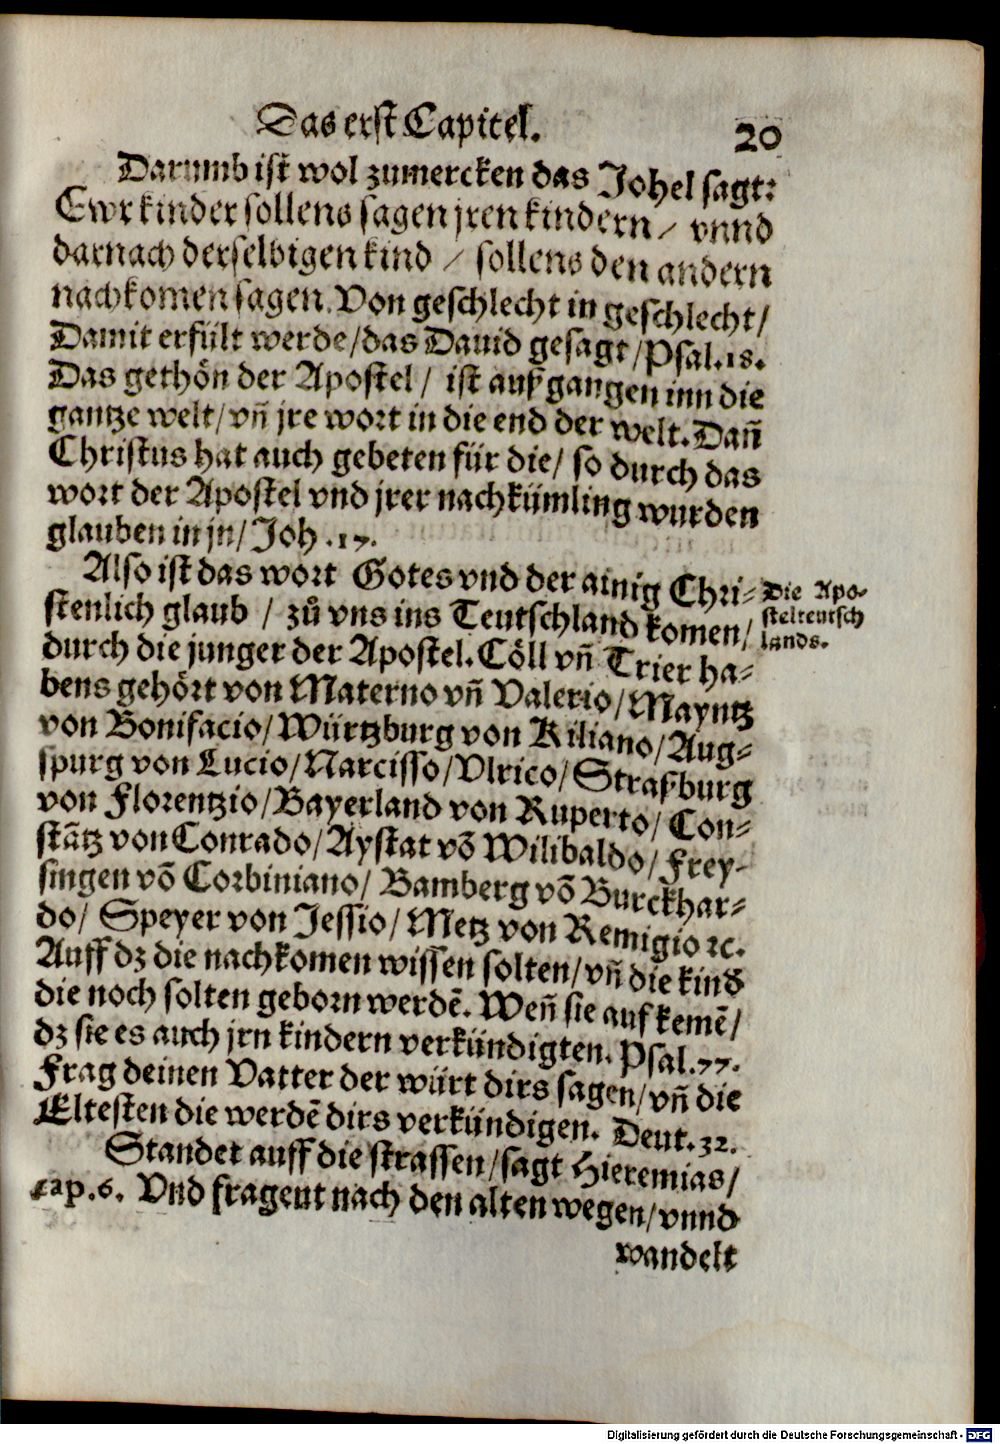 Das erst Capitel.
20
Darumb ist wol zumercken das Johel sagt:
Ewr kinder sollens sagen jren kindern / vnnd
darnach derselbigen kind / sollens den andern
nachkomen sagen. Von geschlecht in geschlecht/
Damit erfült werde/das Dauid gesagt/Psal.18.
Das gethön der Apostel/ ist außgangen inn die
gantze welt/vñ jre wort in die end der welt. Dañ
Christus hat auch gebeten für die/ so durch das
wort der Apostel vnd jrer nachkümling wurden
glauben in jn/Joh .17.
Also ist das wort Gotes vnd der ainig Chri-
stenlich glaub / zů vns ins Teutschland komen/
durch die junger der Apostel. Cöll vñ Trier ha-
bens gehört von Materno vñ Valerio/Mayntz
von Bonifacio/Würtzburg von Kiliano/Aug-
spurg von Lucio/Narcisso/Vlrico/Straßburg
von Florentzio/Bayerland von Ruperto/ Con-
stãtz von Conrado/Aystat võ Wilibaldo/Frey-
singen võ Corbiniano/ Bamberg võ Burckhar-
do/ Speyer von Jessio/Metz von Remigio ꝛc.
Auff dz die nachkomen wissen solten/vñ die kind
die noch solten geborn werdẽ. Weñ sie auf kemẽ/
dz sie es auch jrn kindern verkündigten. Psal.77.
Frag deinen Vatter der würt dirs sagen/vñ die
Eltesten die werdẽ dirs verkündigen. Deut.32.
Standet auff die strassen/sagt Hieremias/
cap.6. Vnd fragent nach den alten wegen/vnnd
wandelt
Die Apo-
stel teutsch
lands.
Digitalisierung gefördert durch die Deutsche Forschungsgemeinschaft - DFG